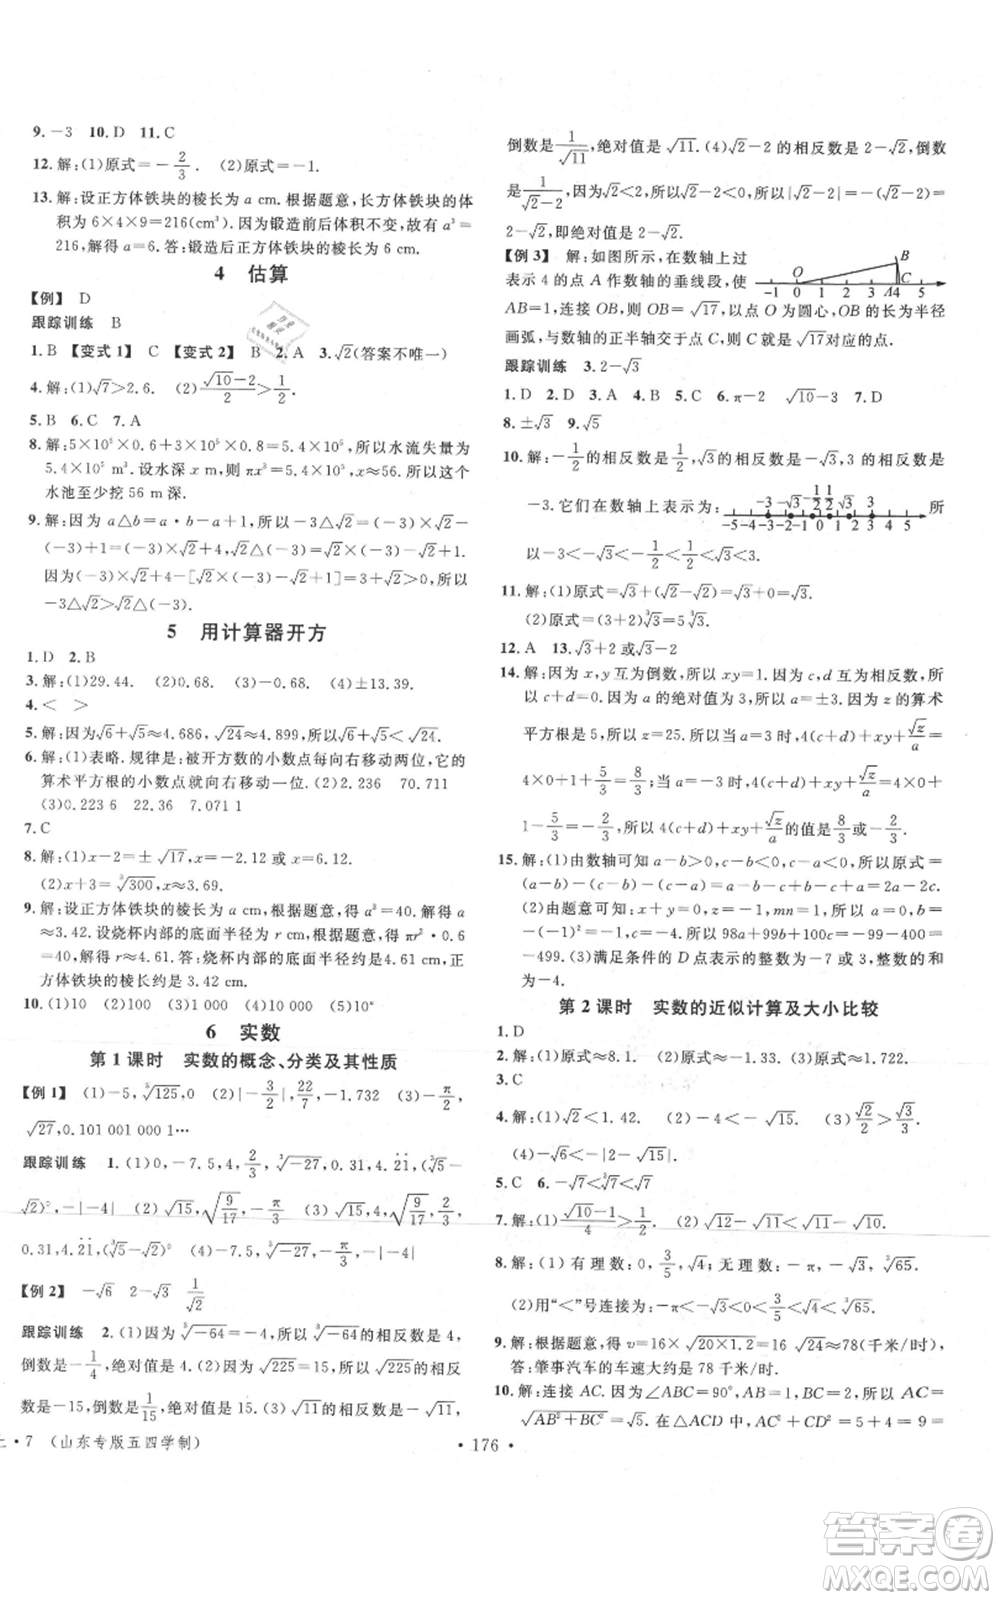 9. －3  10. D  11. C
12. 解:(1)原式＝－2/3.  (2)原式＝－1.
13. 解:设正方体铁块的棱长为 a cm. 根据题意,长方体铁块的体
积为 6×4×9＝216(cm³). 因为锻造前后体积不变,故有 a³＝
216,解得 a＝6. 答:锻造后正方体铁块的棱长为 6 cm.
4 估算
【例】 D
跟踪训练 B
1. B 【变式 1】 C 【变式 2】 B  2. A  3. √2(答案不唯一)
4. 解:(1)√7＞2.6.  (2)(√10－2)/2＞1/2.
5. B  6. C  7. A
8. 解:5×10⁵×0.6＋3×10⁵×0.8＝5.4×10⁵,所以水流失量为
5.4×10⁵ m³. 设水深 x m,则 πx³＝5.4×10⁵,x≈56. 所以这个
水池至少挖 56 m 深.
9. 解:因为 a△b＝a·b－a＋1,所以－3△√2＝(－3)×√2－
(－3)＋1＝4－3√2,√2△(－3)＝(－3)×√2－√2＋1＝－4√2＋1.
因为(－3√2＋4)－[√2×(－3)－√2＋1]＝3＋√2＞0,所以
－3△√2＞√2△(－3).
5 用计算器开方
1. D  2. B
3. 解:(1)29.44.  (2)0.68.  (3)0.68.  (4)±13.39.
4. ＜  ＞
5. 解:因为√6＋√5≈4.686,√24≈4.899,所以√6＋√5＜√24.
6. 解:(1)表略. 规律是:被开方数的小数点向右移动两位,它的
算术平方根的小数点就向右移动一位.  (2)2.236  70.711
(3)0.223 6  22.36  7.071 1
7. C
8. 解:(1)x－2＝±√17,x≈6.12 或 x≈－2.12.
(2)x＋3＝³√300,x≈3.69.
9. 解:设正方体铁块的棱长为 a cm,根据题意,得 a³＝40. 解得 a
≈3.42. 设烧杯内部的底面半径为 r cm,根据题意,得 πr²·0.6
＝40,解得 r≈4.61. 答:烧杯内部的底面半径约是 4.61 cm,正
方体铁块的棱长约是 3.42 cm.
10. (1)10  (2)100  (3)1 000  (4)10 000  (5)10ⁿ
6 实数
第 1 课时 实数的概念、分类及其性质
【例 1】 (1)－5,³√125,0  (2)|－3/2|,22/7,－1.732  (3)－π/2,
√27,0.101 001 000 1…
跟踪训练 1. (1)0,－7.5,4,³√－27,0.31,4.2̇1̇,(³√5－
√2)⁰,－|－4|  (2)√15,√(9/17),－π/3  (3)√15,4,√(9/17),
0.31,4.2̇1̇,(³√5－√2)⁰  (4)－7.5,³√－27,－π/3,－|－4|
【例 2】 －√6  2－√3  1/√2
跟踪训练 2. (1)因为³√－64＝－4,所以³√－64的相反数是 4,
倒数是－1/4,绝对值是 4.  (2)因为√225＝15,所以√225的相反
数是－15,倒数是1/15,绝对值是 15.  (3)√11的相反数是－√11,
上·7 (山东专版五四学制)
倒数是1/√11,绝对值是√11. (4)√2－2 的相反数是 2－√2,倒数
是1/(√2－2),因为√2＜2,所以√2－2＜0,所以|√2－2|＝－(√2－2)＝
2－√2,即绝对值是 2－√2.
【例 3】 解:如图所示,在数轴上过
表示 4 的点 A 作数轴的垂线段,使
AB＝1,连接 OB,则 OB＝√17,以点 O 为圆心,OB 长为半径
画弧,与数轴的正半轴交于点 C,则点 C 就是√17对应的点.
O B －1 0 1 2 3 A4 5
跟踪训练 3. 2－√3
1. D  2. D  3. A  4. B  5. C  6. π－2  √10－3  7. D
8. ±√3  9. √5
10. 解:－1/2的相反数是1/2,√3的相反数是－√3,3 的相反数是
－3. 它们在数轴上表示为: －3 －√3 －1/2 1/2 √3 3 －5－4－3－2－1 0 1 2 3 4 5 所
以－3＜－√3＜－1/2＜1/2＜√3＜3.
11. 解:(1)原式＝√3＋(√2－√2)＝√3＋0＝√3.
(2)原式＝(3＋2)³√3＝5³√3.
12. A  13. √3＋2 或√3－2
14. 解:因为 x,y 互为倒数,所以 xy＝1. 因为 c,d 互为相反数,所
以 c＋d＝0. 因为 a 的绝对值为 3,所以 a＝±3. 因为 z 的算术
平方根是 5,所以 z＝25. 所以当 a＝3 时,4(c＋d)＋xy＋√z/a＝
4×0＋1＋5/3＝8/3;当 a＝－3 时,4(c＋d)＋xy＋√z/a＝4×0＋
1－5/3＝－2/3,所以 4(c＋d)＋xy＋√z/a的值是8/3或－2/3.
15. 解:(1)由数轴可知 a－b＞0,c－a＜0,所以原式＝
(a－b)－(b－c)－(a－c)＋a＝a－b－b＋c－a＋c＋a＝a－2b＋2c.
(2)由题意可知:x＋y＝0,z＝－1,mn＝1,所以原式＝0－
(－1)²⁰＝－1.  (3)满足条件的 D 点表示的整数为－7,3,所以
－499.
第 2 课时 实数的近似计算及大小比较
1. D
2. 解:(1)原式≈8.1.  (2)原式≈－1.33.  (3)原式≈1.722.
3. C
4. 解:(1)√2＜1.42.  (2)－4＜－√15.  (3)√2/2＞√3/3.
(4)－√6＜－|－√15|.
5. C  6. －√7＜³√7＜√7
7. 解:(1)(√10－1)/4＞1/2.  (2)√12－√11＜√11－√10.
8. 解:(1)有理数:0,3/5,√4;无理数:－π,－√3,³√65.
(2)用“＜”号连接为:－π＜－√3＜0＜3/5＜√4＜³√65.
9. 解:根据题意,得 v＝16×√20×1.2＝16√24≈78(千米/时).
答:肇事汽车的车速大约是 78 千米/时.
10. 解:连接 AC. 因为∠ABC＝90°,所以在 Rt△ABC 中,AC＝
· 176 ·
答案卷